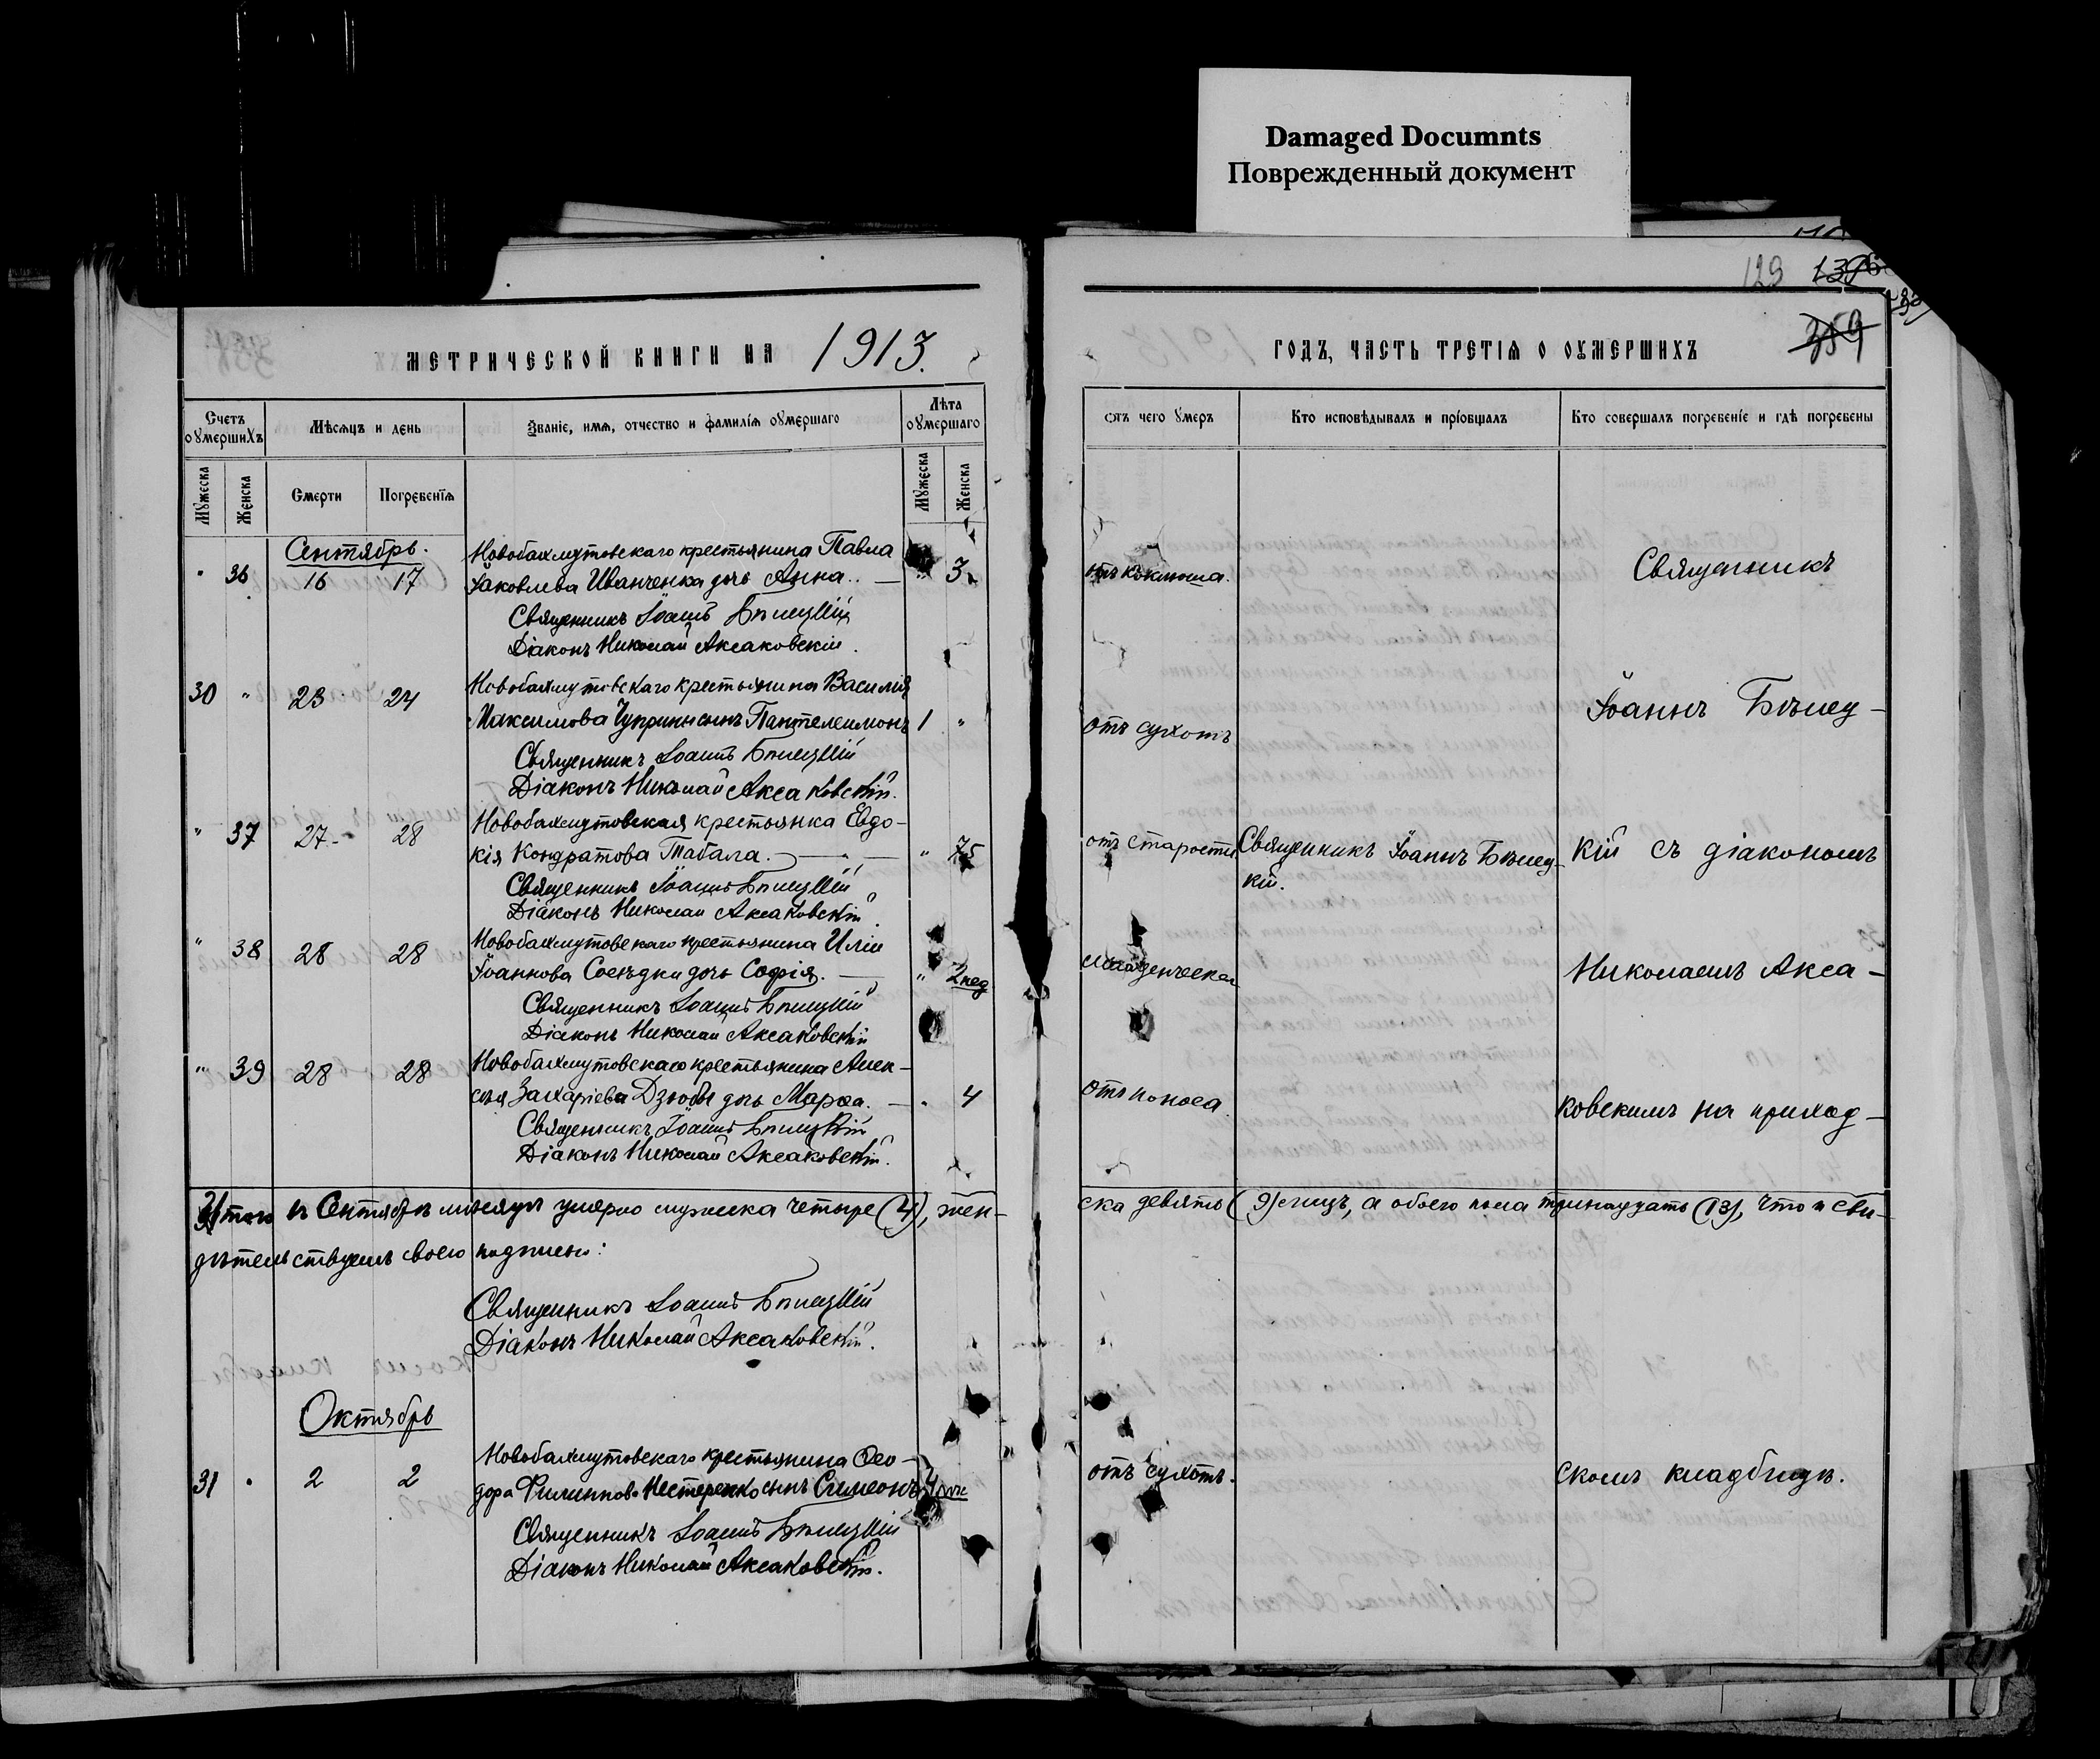 Damaged Documnts
Поврежденный документ
129
359
МЕТРИЧЕСКОЙ КНИГИ НА 1913.
ГОДЪ, ЧАСТЬ ТРЕТІЯ О ОУМЕРШИХЪ
Счетъ оумершихъ
Мѣсяцъ и день
Званіе, имя, отчество и фамилія оумершаго
Лѣта оумершаго
Отъ чего умеръ
Кто исповѣдывалъ и пріобщалъ
Кто совершалъ погребеніе и гдѣ погребены
Мужеска
Женска
Смерти
Погребенія
Мужеска
Женска
Сентябрь.
Новобахмутовскаго крестьянина Павла
" 36 16 17 Іаковлева Иванченка дочь Анна. " 3 отъ коклюша. Священникъ
Священникъ Іоаннъ Бѣлицкій
Діаконъ Николай Аксаковскій.
Новобахмутовскаго крестьянина Василія
30 " 23 24 Максимова Чуприны сынъ Пантелеимонъ 1 " отъ сухотъ Іоаннъ Бѣлиц-
Священникъ Іоаннъ Бѣлицкій
Діаконъ Николай Аксаковскій.
Новобахмутовская крестьянка Евдо-
" 37 27 28 кія Кондратова Табала. " 75 отъ старости Священникъ Іоаннъ Бѣлиц- кій съ діакономъ
кій.
Священникъ Іоаннъ Бѣлицкій
Діаконъ Николай Аксаковскій.
Новобахмутовскаго крестьянина Иліи
" 38 28 28 Іоаннова Сосѣдки дочь Софія. " 2 нед младенческая Николаемъ Акса-
Священникъ Іоаннъ Бѣлицкій
Діаконъ Николай Аксаковскій
Новобахмутовскаго крестьянина Алек-
" 39 28 28 сѣя Захаріева Дзюбы дочь Марѳа. " 4 отъ поноса ковскимъ на приход-
Священникъ Іоаннъ Бѣлицкій
Діаконъ Николай Аксаковскій.
Итого въ Сентябрѣ мѣсяцѣ умерло мужеска четыре (4), жен-
ска девять (9) лицъ, а обоего пола тринадцать (13), что и сви-
дѣтельствуемъ своею подписью:
Священникъ Іоаннъ Бѣлицкій
Діаконъ Николай Аксаковскій.
Октябрь
Новобахмутовскаго крестьянина Ѳео-
31 " 2 2 дора Филиппова Нестеренко сынъ Симеонъ 4 отъ сухотъ. скомъ кладбищѣ.
Священникъ Іоаннъ Бѣлицкій
Діаконъ Николай Аксаковскій.